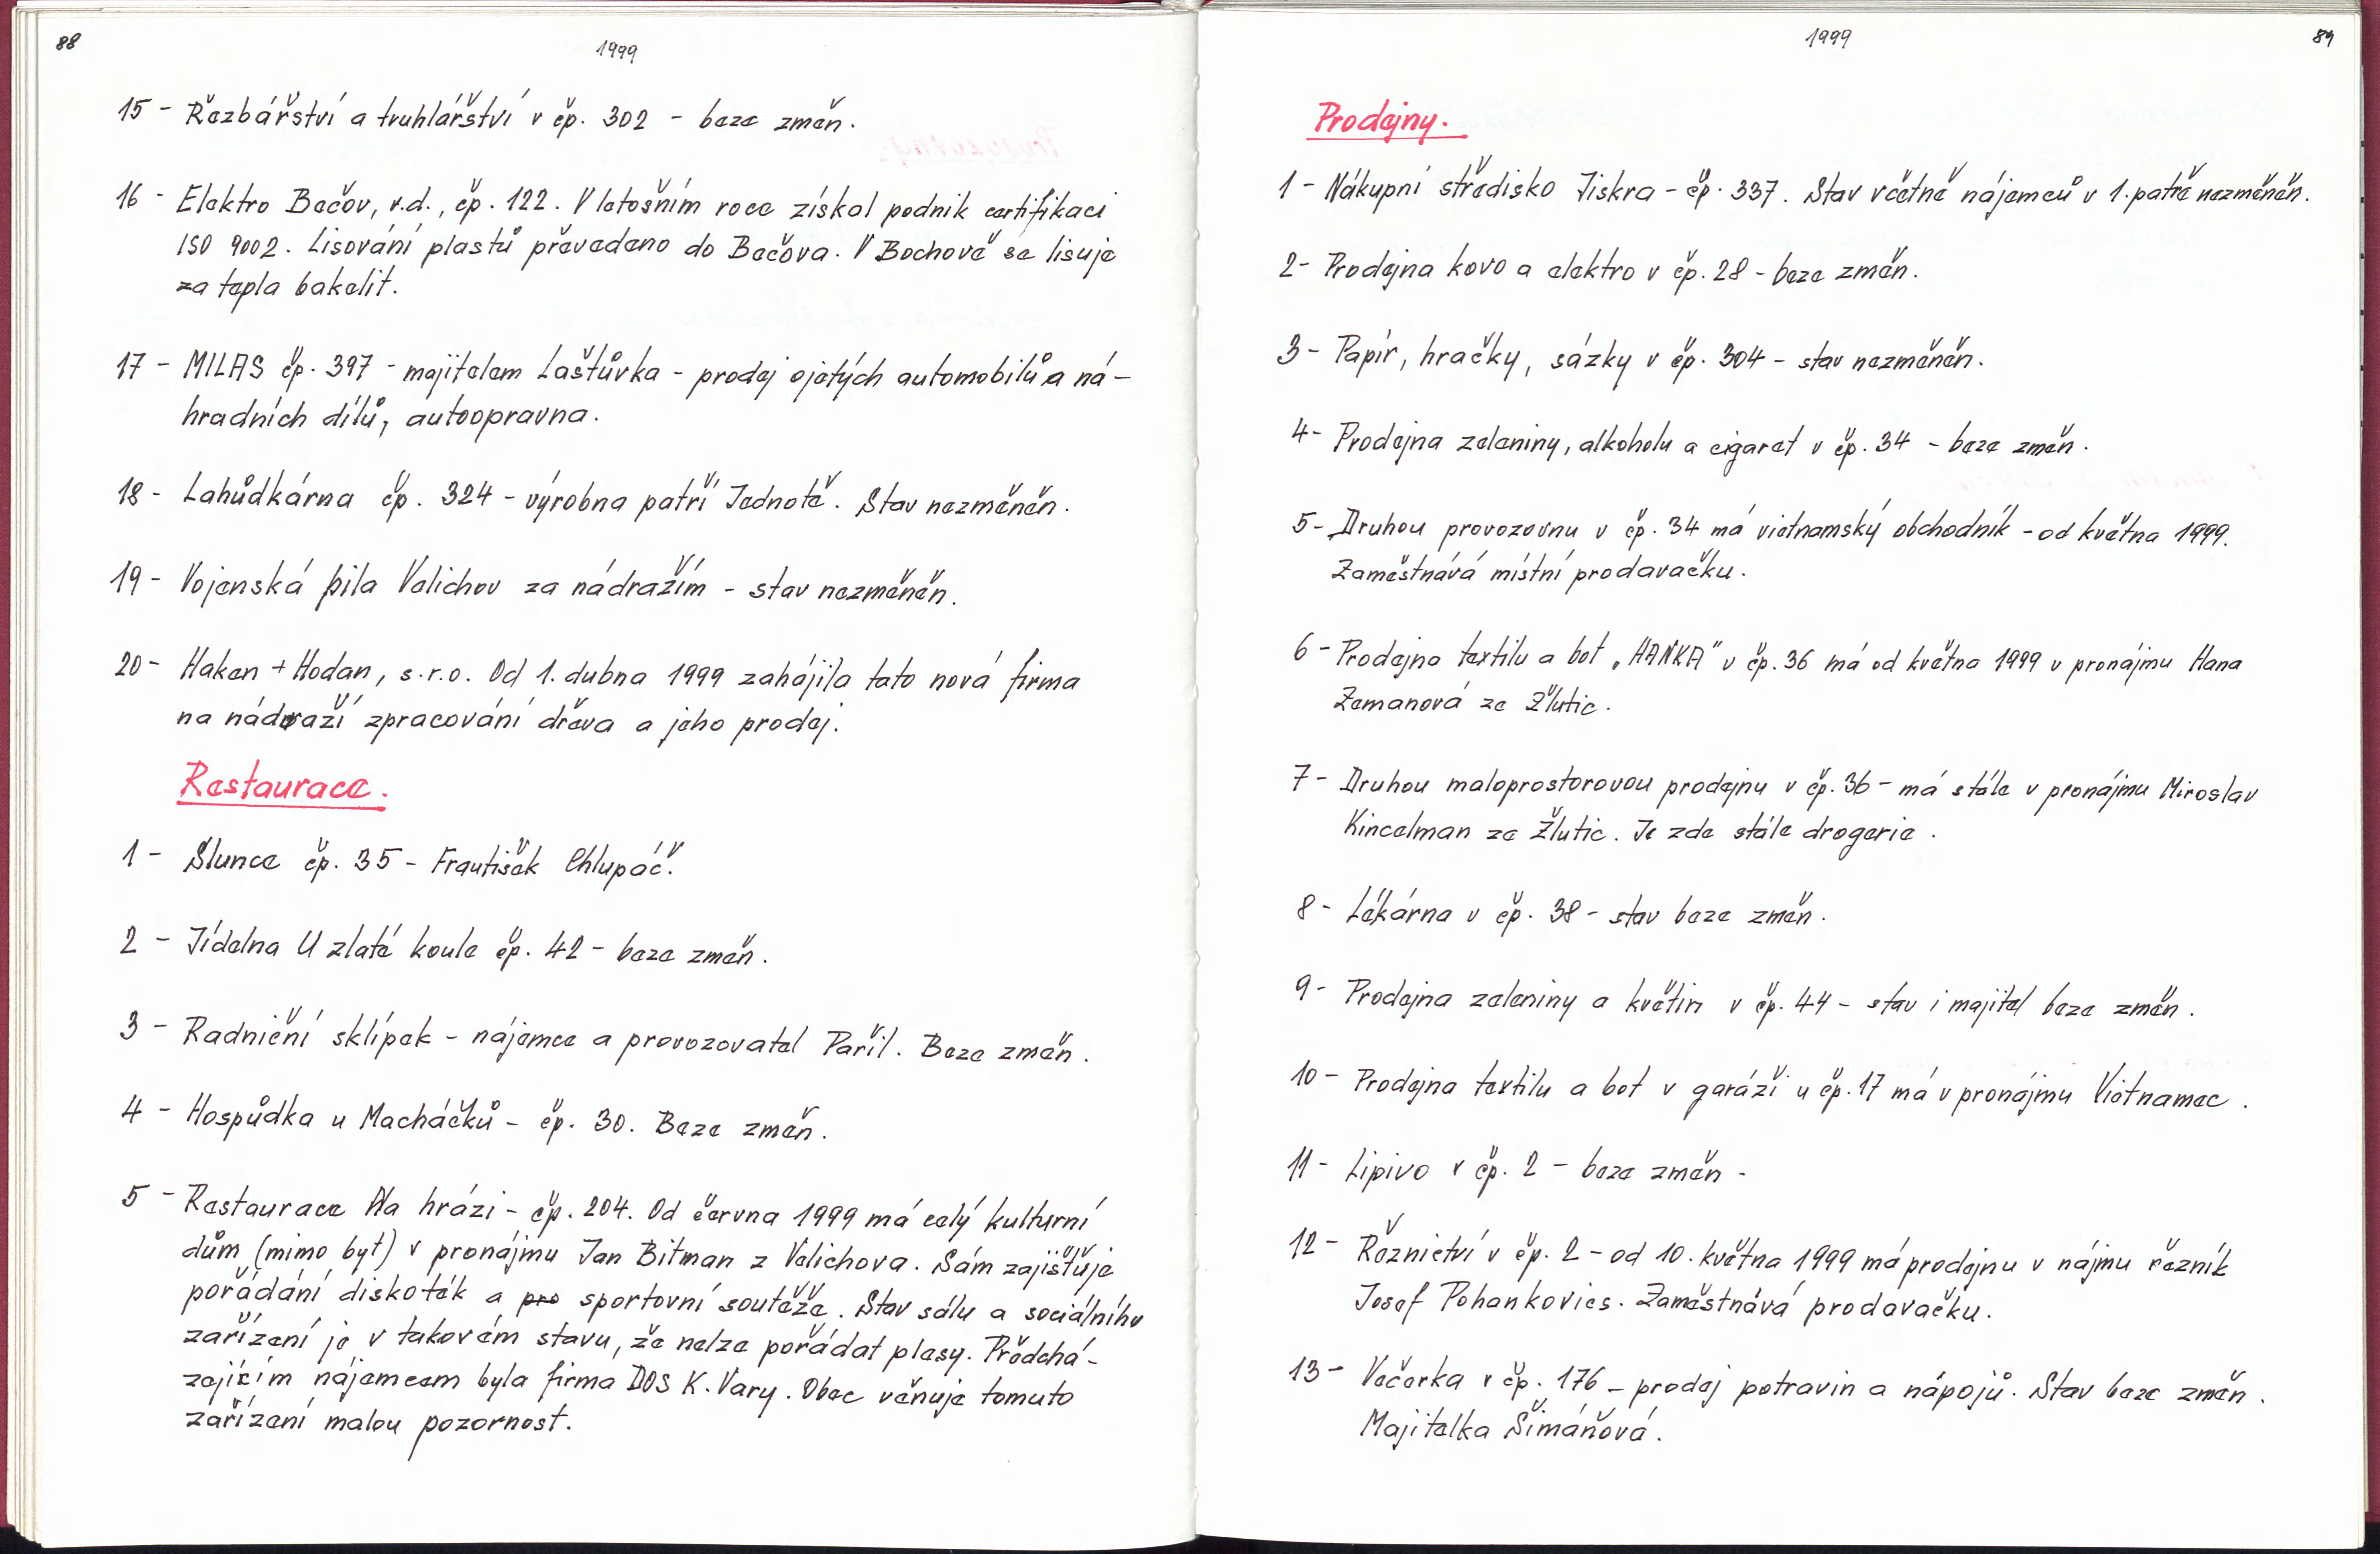 88
1999
15 - Řezbářství a truhlářství v čp. 302 - beze změn.
16 - Elektro Bečov, v.d., čp. 122. V letošním roce získal podnik certifikaci
ISO 9002. Lisování plastů převedeno do Bečova. V Bochově se lisuje
za tepla bakelit.
17 - MILAS čp. 397 - majitelem Laštůvka - prodej ojetých automobilů a ná-
hradních dílů, autoopravna.
18 - Lahůdkárna čp. 324 - výrobna patří Jednotě. Stav nezměněn.
19 - Vojenská pila Velichov za nádražím - stav nezměněn.
20 - Haken + Hodan, s.r.o. Od 1. dubna 1999 zahájila tato nová firma
na nádraží zpracování dřeva a jeho prodej.
Restaurace.
1 - Slunce čp. 35 - František Chlupáč.
2 - Jídelna U zlaté koule čp. 42 - beze změn.
3 - Radniční sklípek - nájemce a provozovatel Pařil. Beze změn.
4 - Hospůdka u Macháčků - čp. 30. Beze změn.
5 - Restaurace Na hrázi - čp. 204. Od června 1999 má celý kulturní
dům (mimo byt) v pronájmu Jan Bitman z Velichova. Sám zajišťuje
pořádání diskoték a pro sportovní soutěže. Stav sálu a sociálního
zařízení je v takovém stavu, že nelze pořádat plesy. Předchá-
zejícím nájemcem byla firma DOS K. Vary. Obec věnuje tomuto
zařízení malou pozornost.
1999
89
Prodejny.
1 - Nákupní středisko Jiskra - čp. 337. Stav včetně nájemců v 1. patře nezměněn.
2 - Prodejna kovo a elektro v čp. 28 - beze změn.
3 - Papír, hračky, sázky v čp. 304 - stav nezměněn.
4 - Prodejna zeleniny, alkoholu a cigaret v čp. 34 - beze změn.
5 - Druhou provozovnu v čp. 34 má vietnamský obchodník - od května 1999.
Zaměstnává místní prodavačku.
6 - Prodejna textilu a bot „HANKA" v čp. 36 má od května 1999 v pronájmu Hana
Zemanová ze Žlutic.
7 - Druhou maloprostorovou prodejnu v čp. 36 - má stále v pronájmu Miroslav
Kincelman ze Žlutic. Je zde stále drogerie.
8 - Lékárna v čp. 38 - stav beze změn.
9 - Prodejna zeleniny a květin v čp. 44 - stav i majitel beze změn.
10 - Prodejna textilu a bot v garáži u čp. 17 má v pronájmu Vietnamec.
11 - Lipivo v čp. 2 - beze změn -
12 - Řeznictví v čp. 2 - od 10. května 1999 má prodejnu v nájmu řezník
Josef Pohankovics. Zaměstnává prodavačku.
13 - Večerka v čp. 176 - prodej potravin a nápojů. Stav beze změn.
Majitelka Šimáňová.